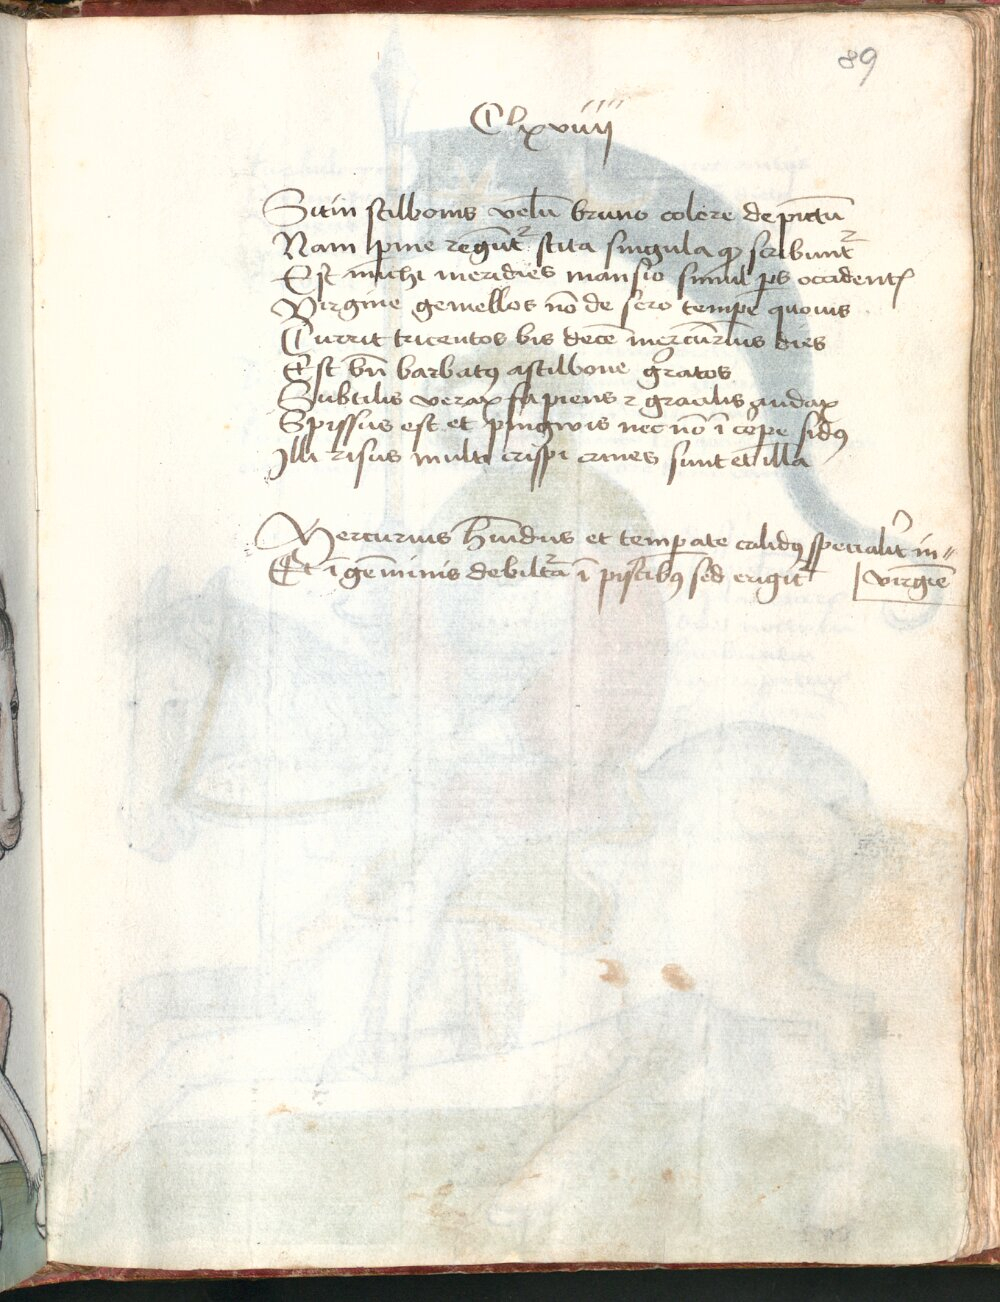 89
Clxviiij
Sitin stilbonis velū bruno colore depictū
Nam pme regūt᷑ stita singula qꝫ scribunt᷑
Est michi meridies mansio simul ps occidentꝭ
Virgine gemellos nō de sero tempe quouis
Currit tricentos bis decē mercurius dies
Est bn̄ barbatꝰ astilbone gratos
Subtilis verax sapiens ⁊ gracilis audax
Spissus est et pingwis nec nō ī corpe sidꝰ
Illi risus multi crispi crines sunt et illa
Mercurius hūidus et temperate calidꝰ specialit̓ in〃
Et ī geminis debilt᷑a ī piscibꝰ sed erigit᷑ virgīe